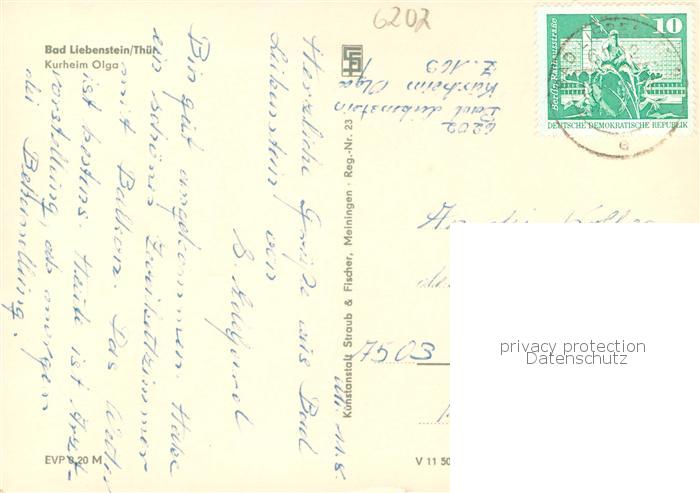 6202
Bad Liebenstein/Thür.
Kurheim Olga
6202
Bad Liebenstein
Kurheim Olga
Z. 169
Berlin, Rathausstraße
10
DEUTSCHE DEMOKRATISCHE REPUBLIK
Herzliche Grüße aus Bad
Liebenstein von
Bin gut angekommen. Habe
ein schönes Zweibettzimmer
mit Balkon. Das Wetter
ist bestens. Heute ist Arzt-
vorstellung, ab morgen
die Behandlung.
Kunstanstalt Straub & Fischer, Meiningen · Reg.-Nr. 23
An die
7503
privacy protection
Datenschutz
EVP 0,20 M
V 11 50